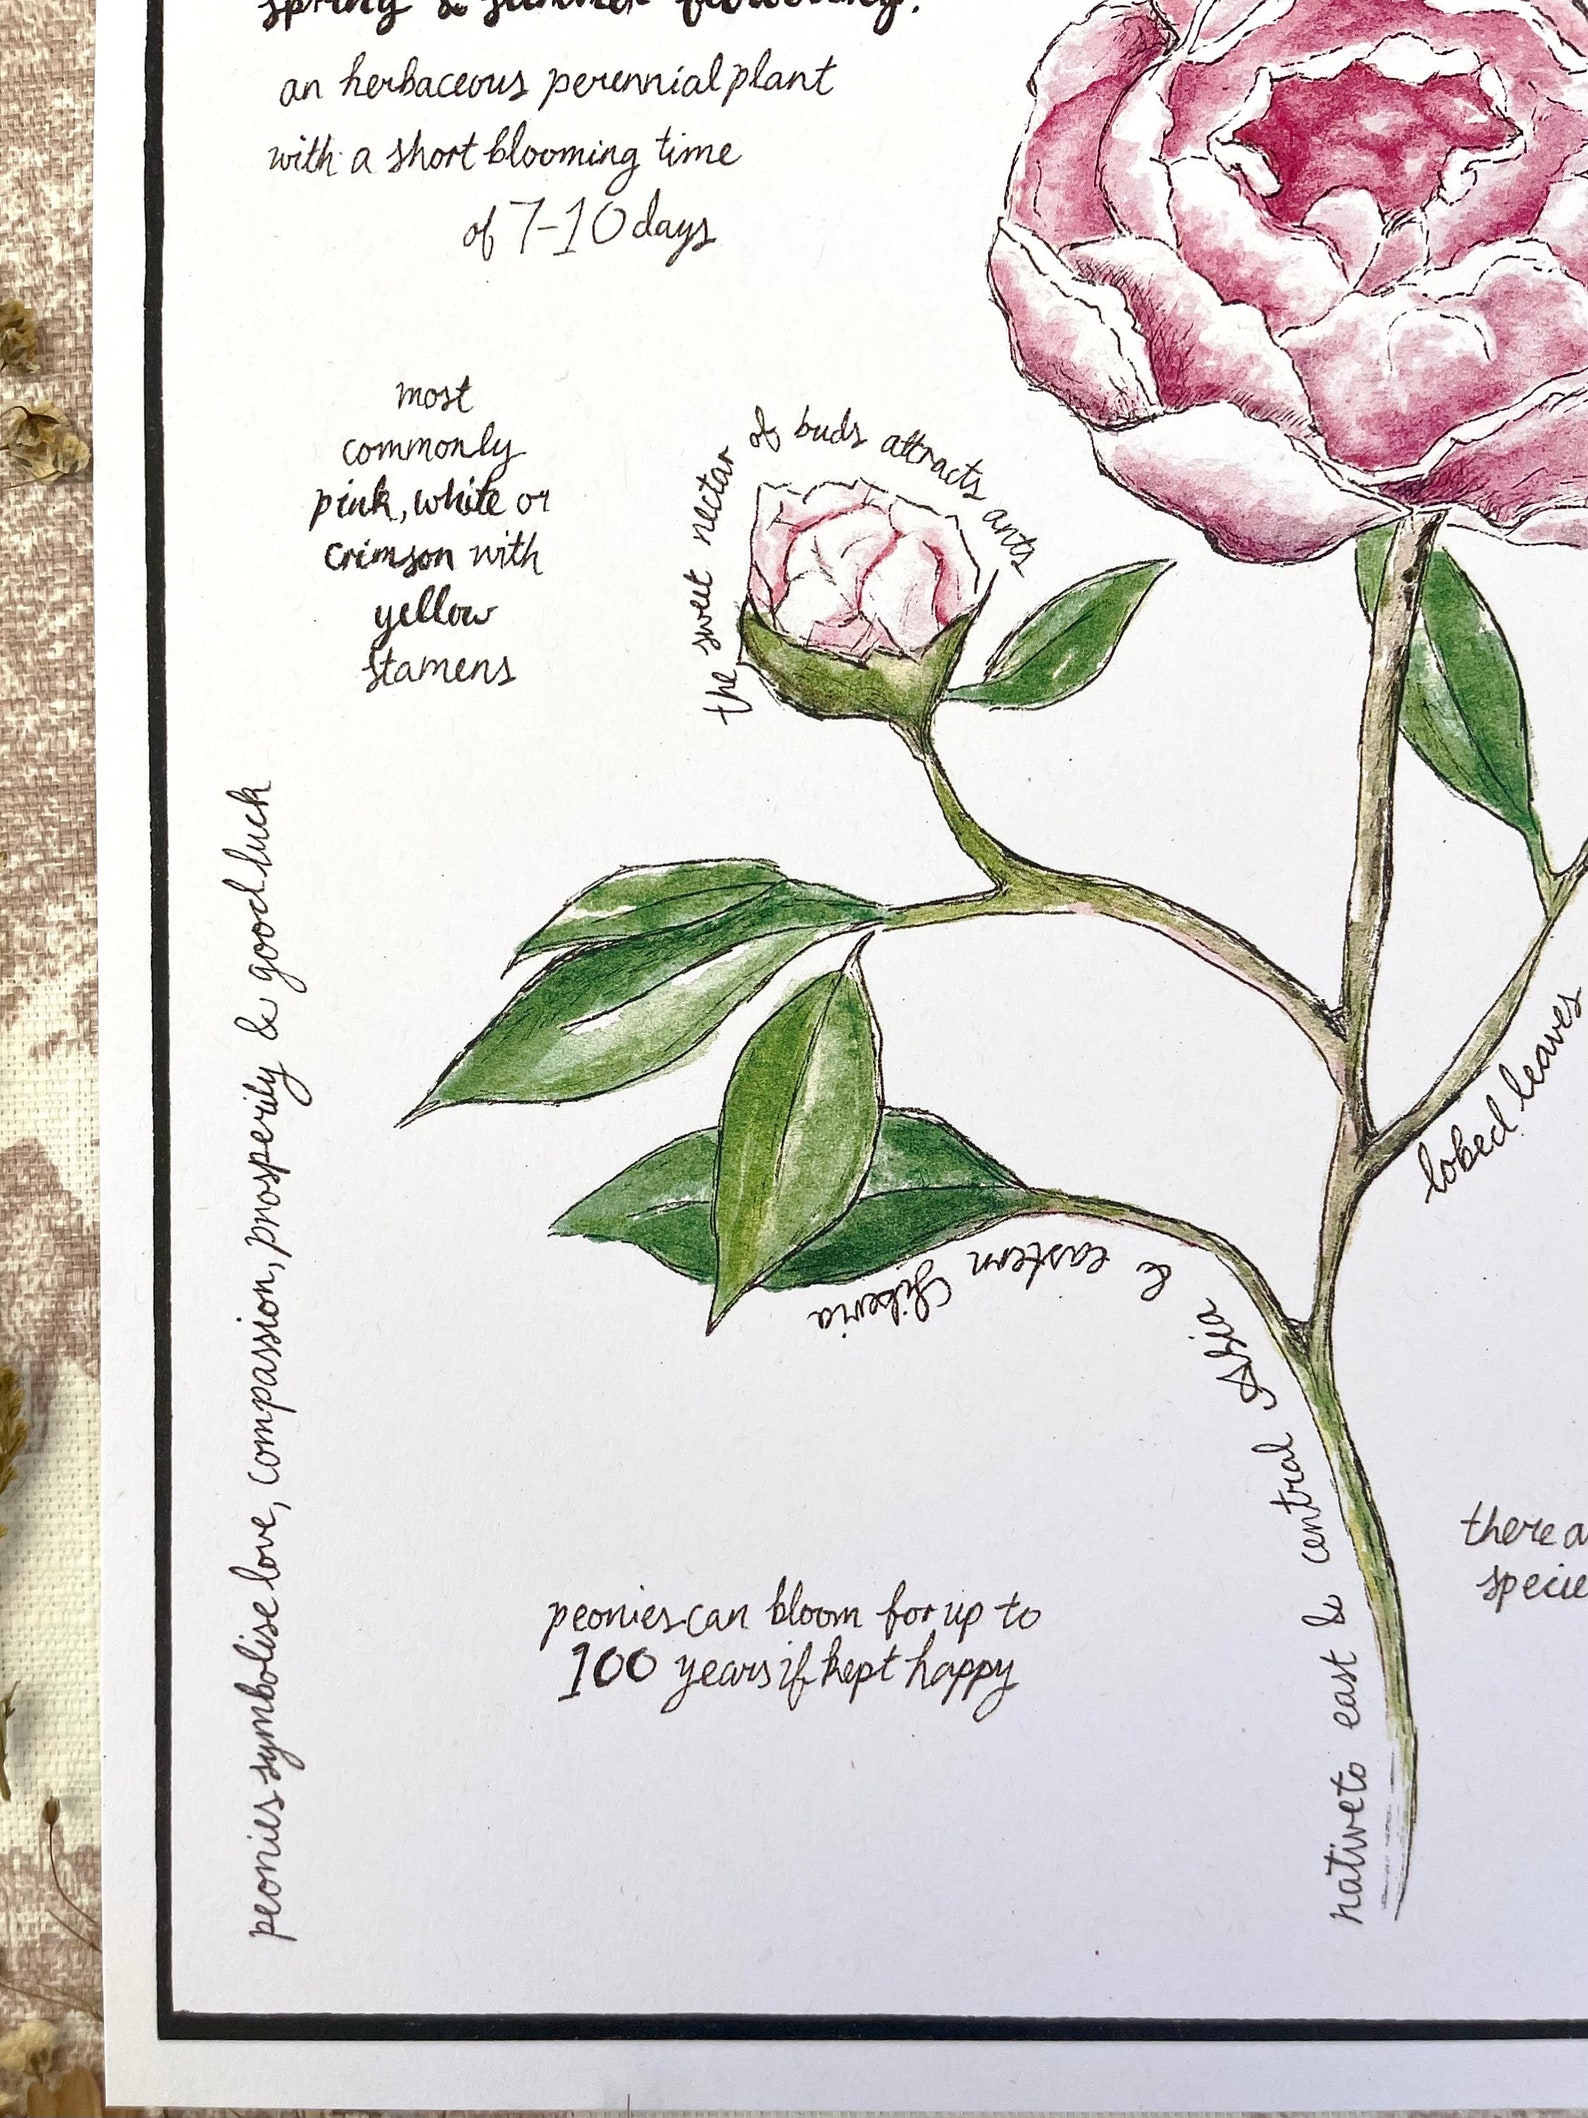 spring & summer flowering.
an herbaceous perennial plant
with a short blooming time
of 7-10 days
most
commonly
pink, white or
crimson with
yellow
stamens
the sweet nectar of buds attracts ants
peonies symbolise love, compassion, prosperity & good luck
lobed leaves
native to east & central Asia & eastern Siberia
there a
specie
peonies can bloom for up to
100 years if kept happy